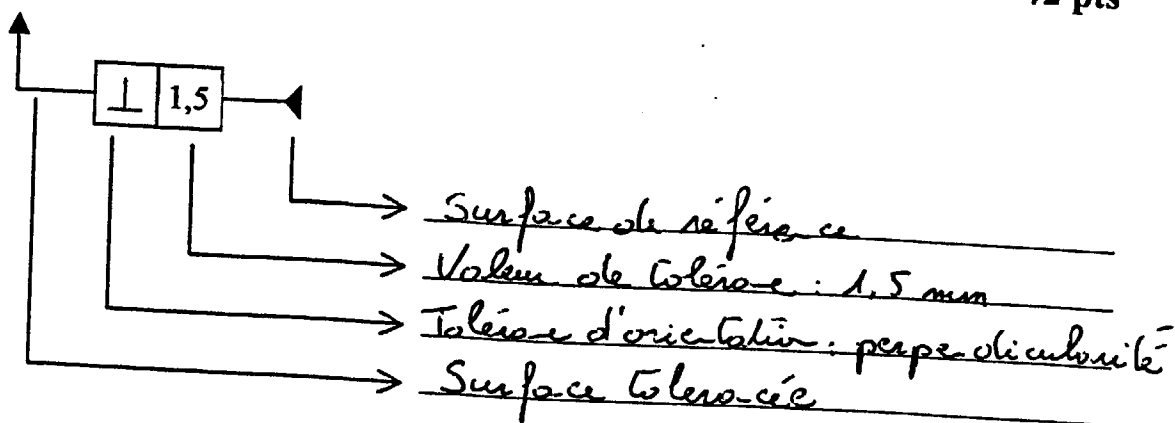 /2 pts
⊥ 1,5
Surface de référence
Valeur de tolérance : 1,5 mm
Tolérance d'orientation : perpendicularité
Surface tolérancée